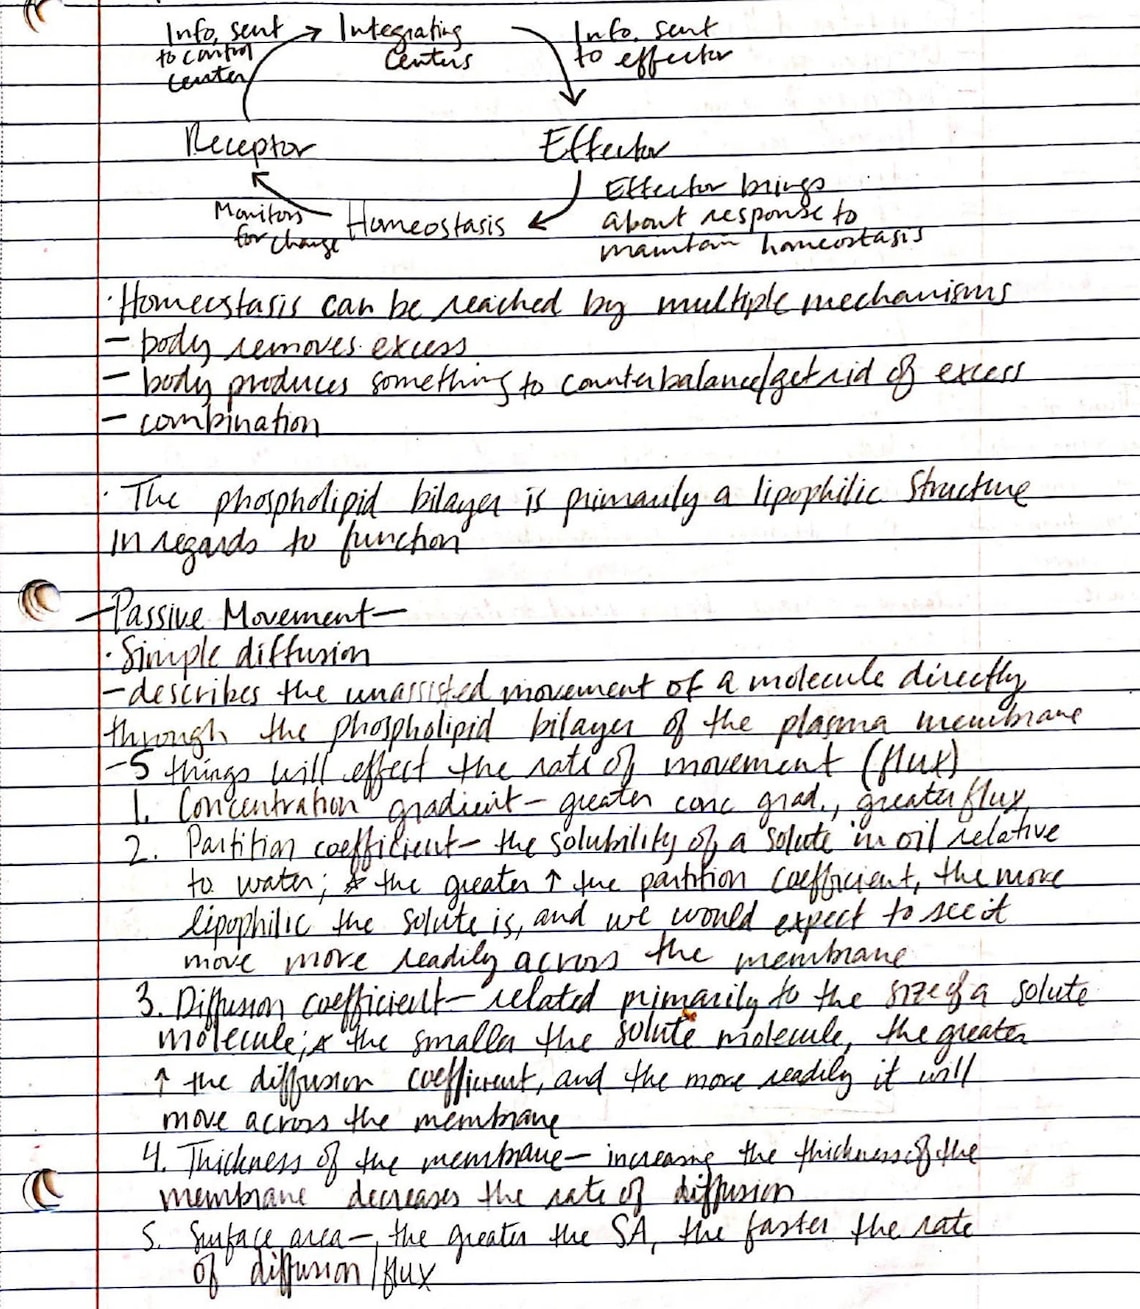 Info. sent
to control
center
Integrating
centers
Info. sent
to effector
Receptor
Effector
Effector brings
about response to
maintain homeostasis
Homeostasis
Monitors
for change
· Homeostasis can be reached by multiple mechanisms
- body removes excess
- body produces something to counterbalance/get rid of excess
- combination
· The phospholipid bilayer is primarily a lipophilic structure
in regards to function
- Passive Movement -
· Simple diffusion
- describes the unassisted movement of a molecule directly
through the phospholipid bilayer of the plasma membrane
- 5 things will effect the rate of movement (flux)
1. Concentration gradient - greater conc grad., greater flux
2. Partition coefficient - the solubility of a solute in oil relative
to water; * the greater ↑ the partition coefficient, the more
lipophilic the solute is, and we would expect to see it
move more readily across the membrane
3. Diffusion coefficient - related primarily to the size of a solute
molecule; * the smaller the solute molecule, the greater
↑ the diffusion coefficient, and the more readily it will
move across the membrane
4. Thickness of the membrane - increasing the thickness of the
membrane decreases the rate of diffusion
5. Surface area -, the greater the SA, the faster the rate
of diffusion/flux